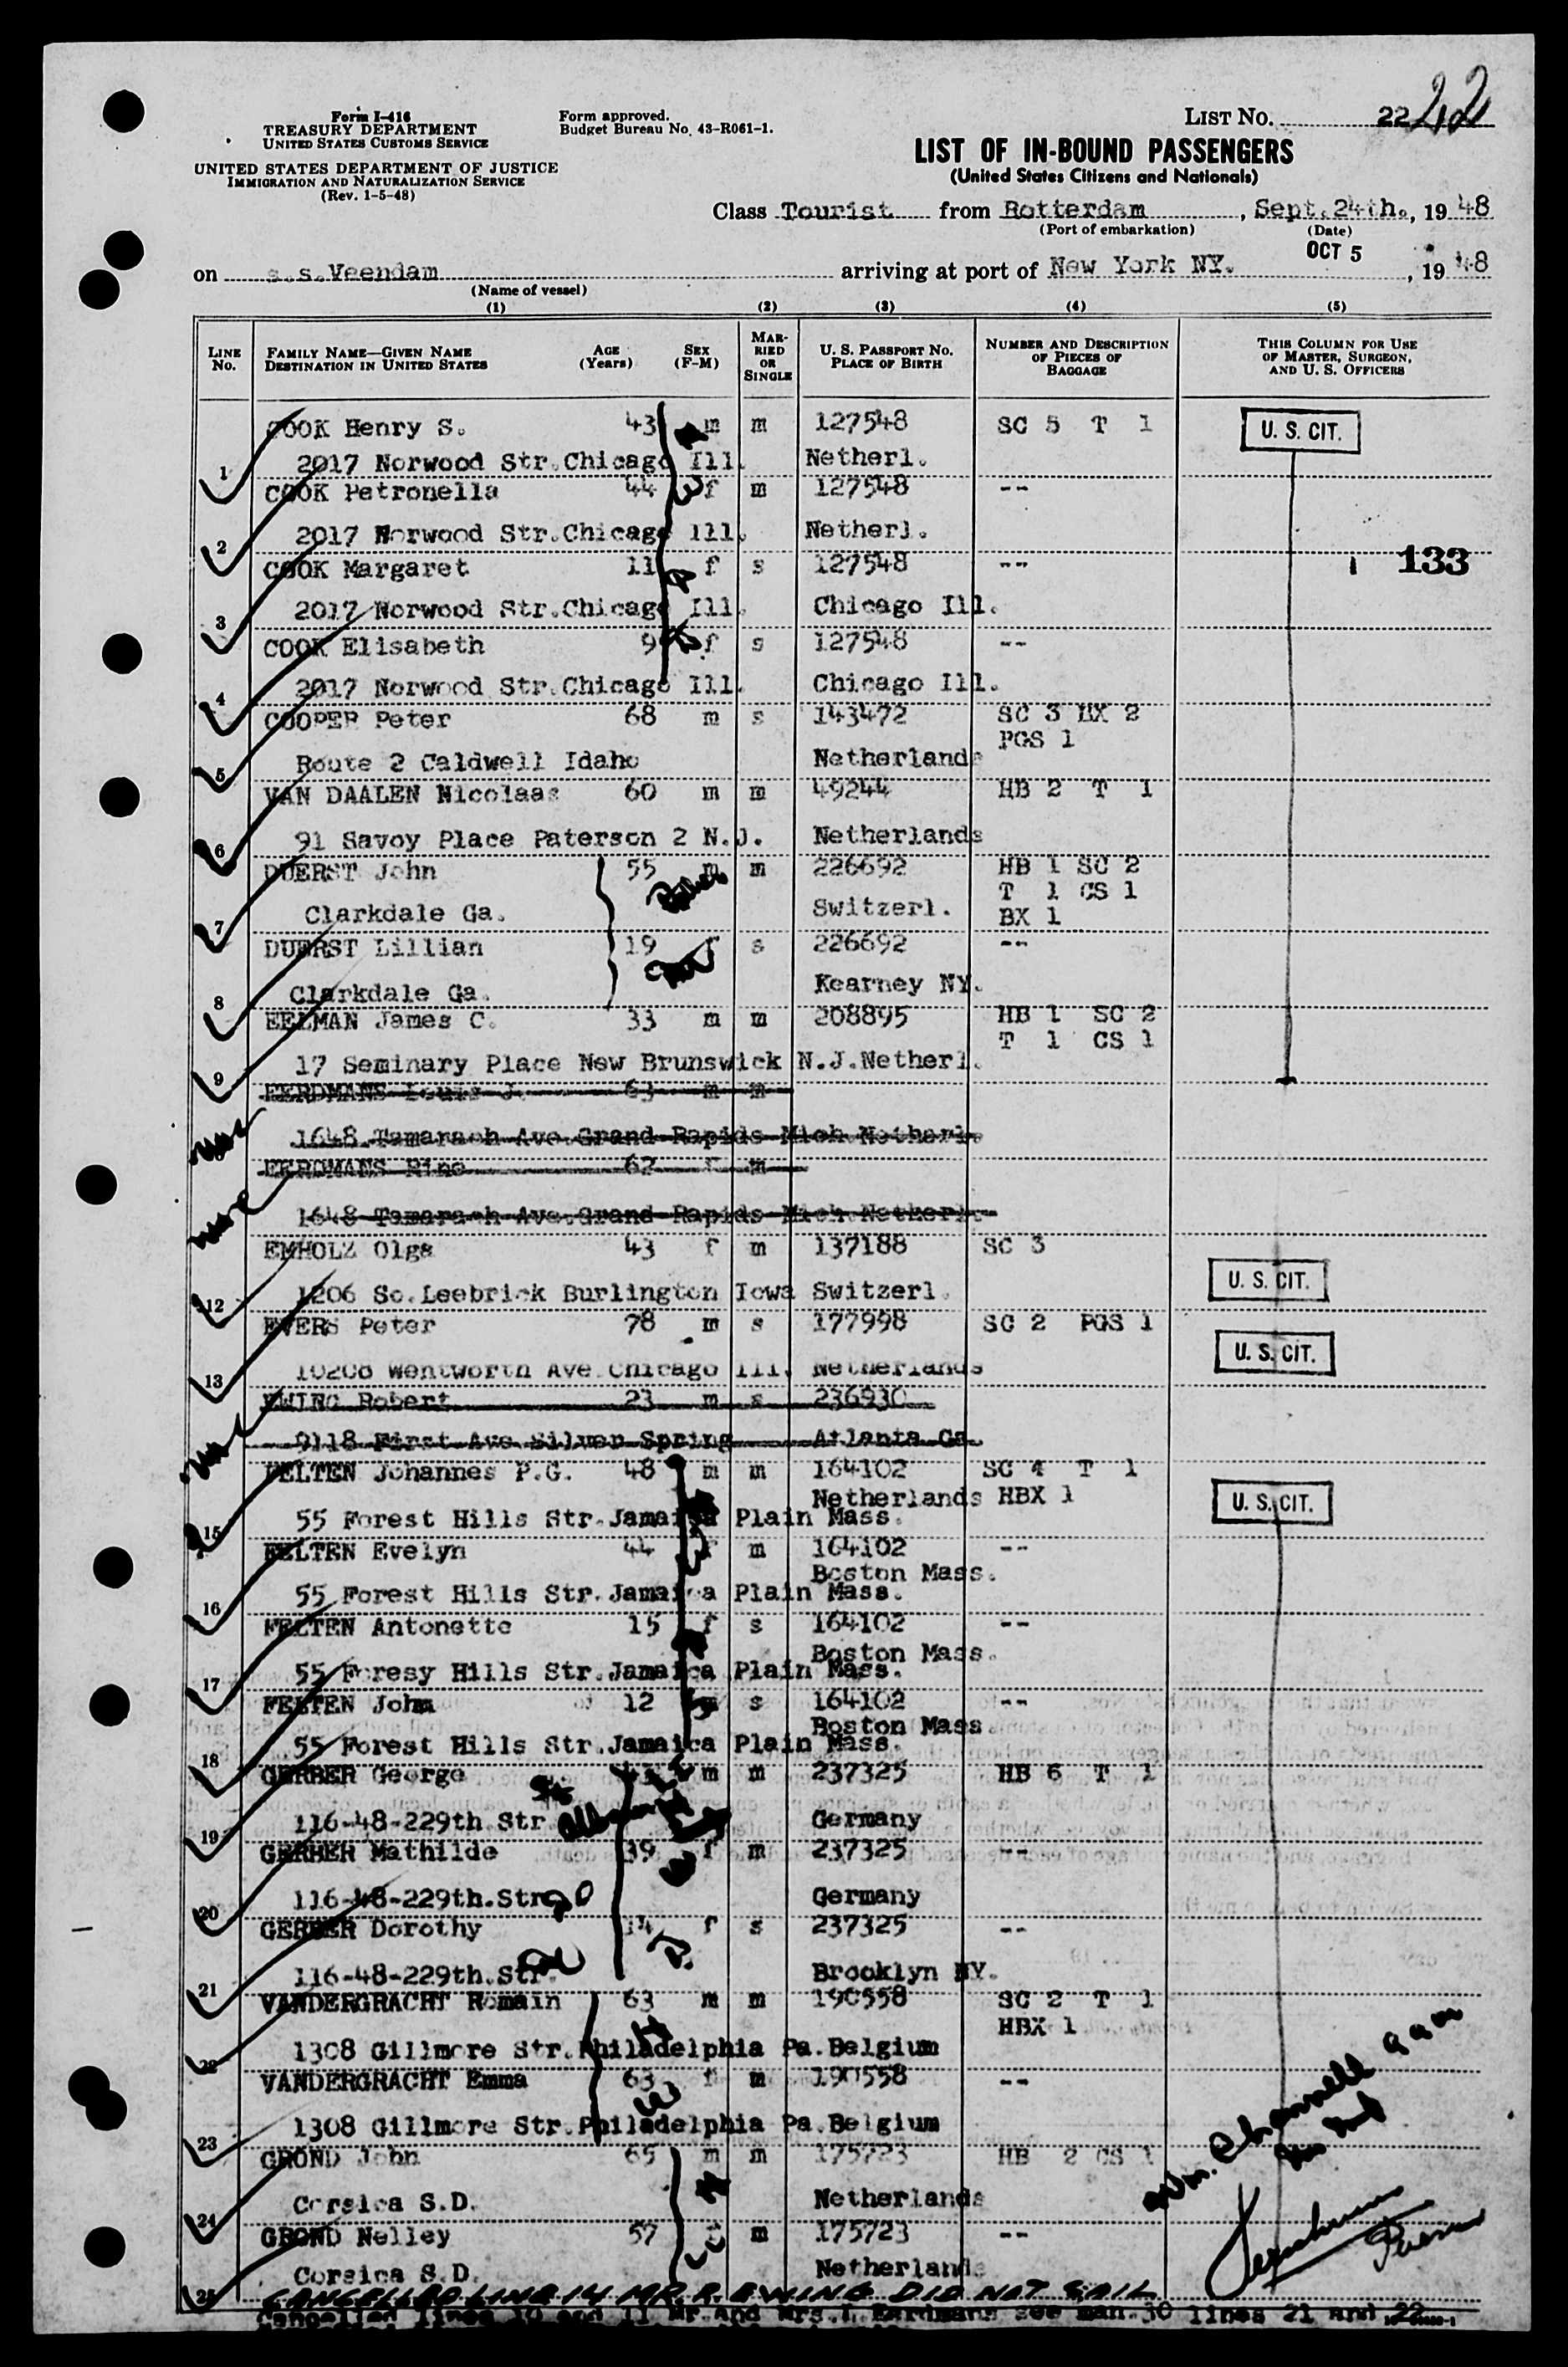 Form I-416
TREASURY DEPARTMENT
UNITED STATES CUSTOMS SERVICE
UNITED STATES DEPARTMENT OF JUSTICE
IMMIGRATION AND NATURALIZATION SERVICE
(Rev. 1-5-48)
Form approved.
Budget Bureau No. 43-R061-1.
LIST NO. 22 22
LIST OF IN-BOUND PASSENGERS
(United States Citizens and Nationals)
Class Tourist from Rotterdam, Sept.24th., 19 48
(Port of embarkation) (Date)
on s.s.Veendam arriving at port of New York NY. OCT 5, 19 48
(Name of vessel)
(1) (2) (3) (4) (5)
LINE No. FAMILY NAME—GIVEN NAME DESTINATION IN UNITED STATES AGE (Years) SEX (F-M) MARRIED OR SINGLE U. S. PASSPORT NO. PLACE OF BIRTH NUMBER AND DESCRIPTION OF PIECES OF BAGGAGE THIS COLUMN FOR USE OF MASTER, SURGEON, AND U. S. OFFICERS
COOK Henry S. 43 m m 127548 SC 5 T 1 U. S. CIT.
1 2017 Norwood Str.Chicago Ill. Netherl.
COOK Petronella 44 f m 127548 --
2 2017 Norwood Str.Chicago Ill. Netherl.
COOK Margaret 11 f s 127548 -- 133
3 2017 Norwood Str.Chicago Ill. Chicago Ill.
COOK Elisabeth 9 f s 127548 --
4 2017 Norwood Str.Chicago Ill. Chicago Ill.
COOPER Peter 68 m s 143472 SC 3 BX 2
PGS 1
5 Route 2 Caldwell Idaho Netherlands
VAN DAALEN Nicolaas 60 m m 49244 HB 2 T 1
6 91 Savoy Place Paterson 2 N.J. Netherlands
DUERST John 55 m m 226692 HB 1 SC 2
T 1 CS 1
7 Clarkdale Ga. Switzerl. BX 1
DUERST Lillian 19 f s 226692 --
8 Clarkdale Ga. Kearney NY.
EELMAN James C. 33 m m 208895 HB 1 SC 2
T 1 CS 1
9 17 Seminary Place New Brunswick N.J.Netherl.
EERDMANS Louis J. 63 m m
1648 Tamarach Ave.Grand Rapids Mich.Netherl.
EERDMANS Rine 62 f m
1648 Tamarach Ave.Grand Rapids Mich.Netherl.
EMHOLZ Olga 43 f m 137188 SC 3
12 1206 So.Leebrick Burlington Iowa Switzerl. U. S. CIT.
EVERS Peter 78 m s 177998 SC 2 PGS 1
U. S. CIT.
13 10208 Wentworth Ave Chicago Ill. Netherlands
EWING Robert 23 m s 236930
9118 First Ave Silver Spring Atlanta Ga.
FELTEN Johannes P.G. 48 m m 164102 SC 4 T 1
Netherlands HBX 1 U. S. CIT.
15 55 Forest Hills Str.Jamaica Plain Mass.
FELTEN Evelyn 44 f m 164102 --
Boston Mass.
16 55 Forest Hills Str.Jamaica Plain Mass.
FELTEN Antonette 15 f s 164102 --
Boston Mass.
17 55 Foresy Hills Str.Jamaica Plain Mass.
FELTEN John 12 m s 164102 --
Boston Mass.
18 55 Forest Hills Str.Jamaica Plain Mass.
GERBER George m m 237325 HB 6 T 1
19 116-48-229th.Str. Germany
GERBER Mathilde 39 f m 237325 --
20 116-48-229th.Str. Germany
GERBER Dorothy 14 f s 237325 --
21 116-48-229th.Str. Brooklyn NY.
VANDERGRACHT Romain 63 m m 190558 SC 2 T 1
HBX 1
22 1308 Gillmore Str.Philadelphia Pa.Belgium
VANDERGRACHT Emma 63 f m 190558 --
23 1308 Gillmore Str.Philadelphia Pa.Belgium
GROND John 65 m m 175723 HB 2 CS 1
24 Corsica S.D. Netherlands
GROND Nelley 57 f m 175723 --
25 Corsica S.D. Netherlands
CANCELLED LINE 14 MR. R. EWING DID NOT SAIL
Cancelled lines 10 and 11 Mr.and Mrs.L Eerdmans see man.30 lines 21 and 22